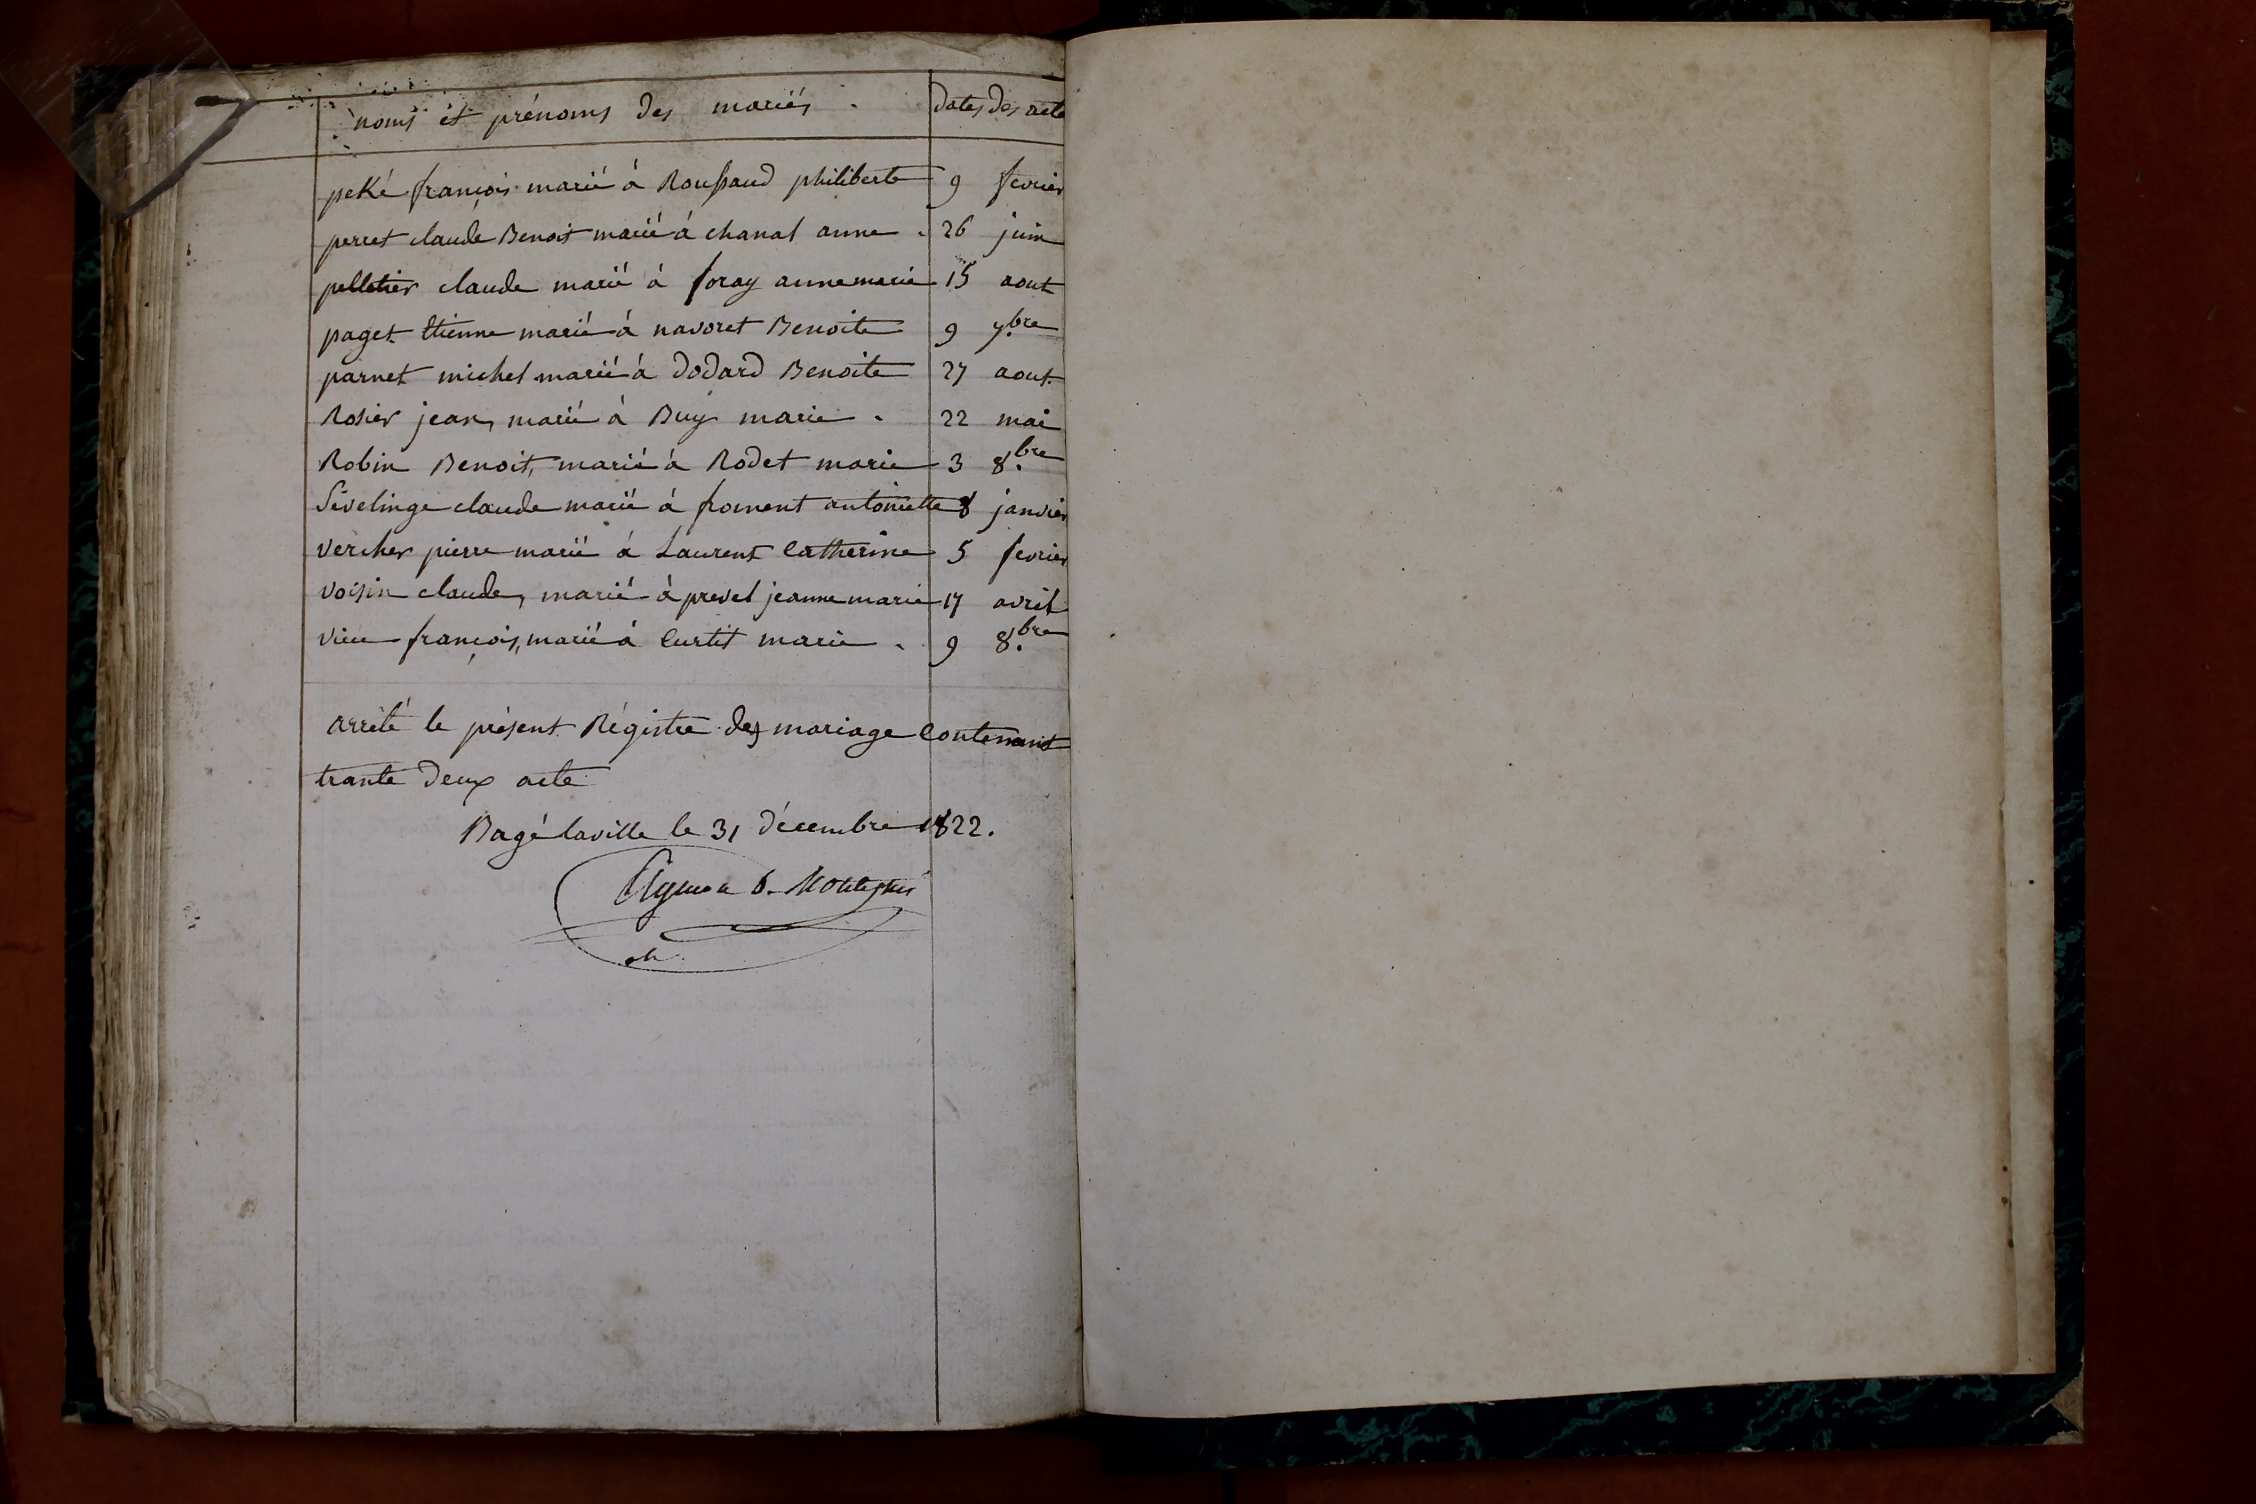 noms et prénoms des mariés . dates des acte
peké françois marié à Roussaud philiberte 9 fevrier
perret claude Benoit marié à chanal anne . 26 juin
pelletier claude marié à foray anne marie 15 aout
paget Etienne marié à navoret Benoite 9 7.bre
parnet michel marié à dodard Benoite 27 aout.
Rosier jean, marié à Buy marie . 22 mai
Robin Benoit, marié à Rodet marie 3 8.bre
Sivelinge claude marié à froment antoinette 8 janvier
vercher pierre marié à Laurent Catherine 5 fevrier
voisin claude, marié à prevel jeanne marie 17 avril
françois, marié à Curtit marie . 9 8.bre
arrêté le présent Régistre des mariage Contenant
trante deux acte
Bagé laville le 31 décembre 1822.